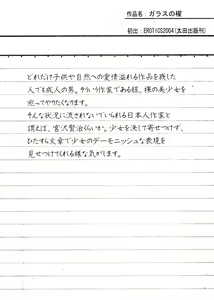 作品名：ガラスの櫂
初出：EROTICS2004(太田出版刊)
どれだけ子供や自然への愛情溢れる作品を残した
人でも成人の男。ナルい作家である程、裸の美少女を
宛ってやりたくなります。
そんな状況に流されないでいられる日本人作家と
謂えば、宮沢賢治くらいか。少女を決して寄せつけず、
ひたすら文章で少女のデーモニッシュな表現を
見せつけてくれる様な気がします。